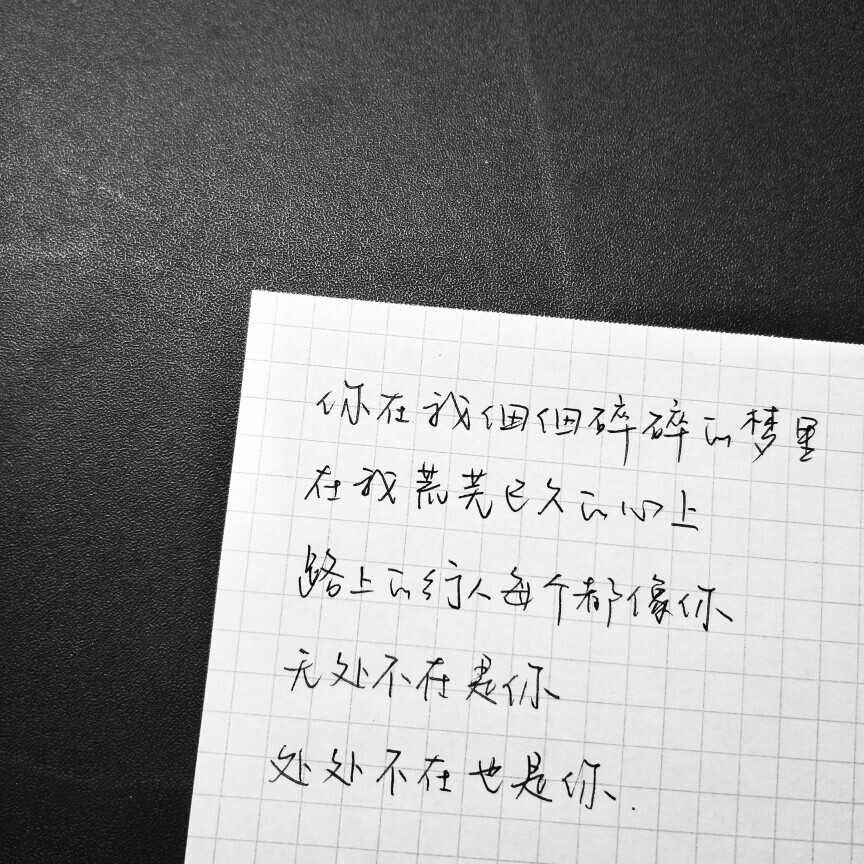 你在我细细碎碎的梦里
在我荒芜已久的心上
路上的行人每个都像你
无处不在是你
处处不在也是你.